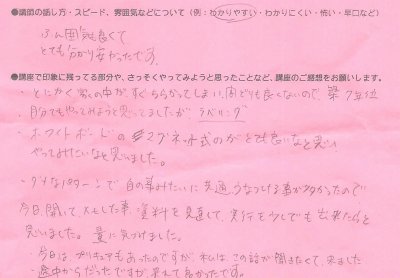 ●講師の話し方・スピード、雰囲気などについて（例：わかりやすい・わかりにくい・怖い・早口など）
ふん囲気も良くて
とても分かり安かったです。
●講座で印象に残ってる部分や、さっそくやってみようと思ったことなど、講座のご感想をお願いします。
・とにかく家の中がすぐちらかってしまい、間どりも良くないので、
・自分でもやってみようと思ってましたが ラベリング
・ホワイトボードの マグネット式のがとても良いなと思い
やってみたいなと思いました。
・ダメなパターンで 自の事みたいに 共通 うなづける事が多かったので
今日、聞いて、メモした事、資料を見直して、実行を少しでも出来たらと
思いました。 量に気づけました。
・今日は、プリキュアもあったのですが、私は、この話が聞きたくて、来ました
途中からだったですが、来れて良かったです。